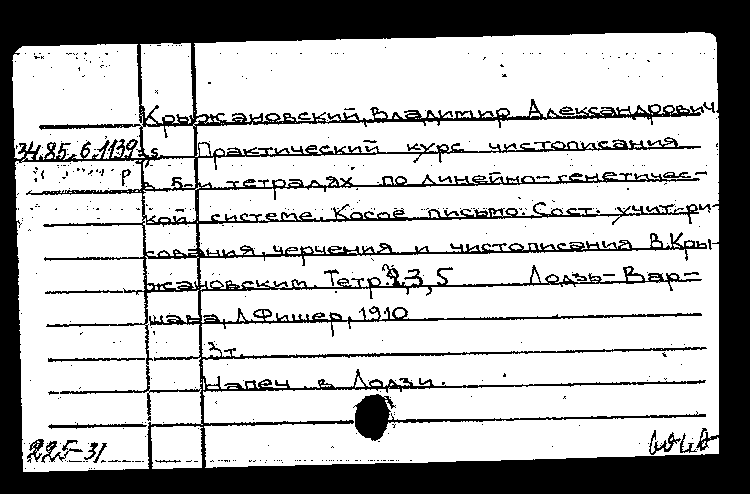 Крыжановский, Владимир Александрович.
34.85.6.1139 Практический курс чистописания
в 5-и тетрадях по линейно-генетичес-
кой системе. Косое письмо. Сост. учит. ри-
сования, черчения и чистописания В. Кры-
жановским. Тетр. 2, 3, 5 Лодзь-Вар-
шава, Л. Фишер, 1910
3 т.
Напеч. в Лодзи.
225-31